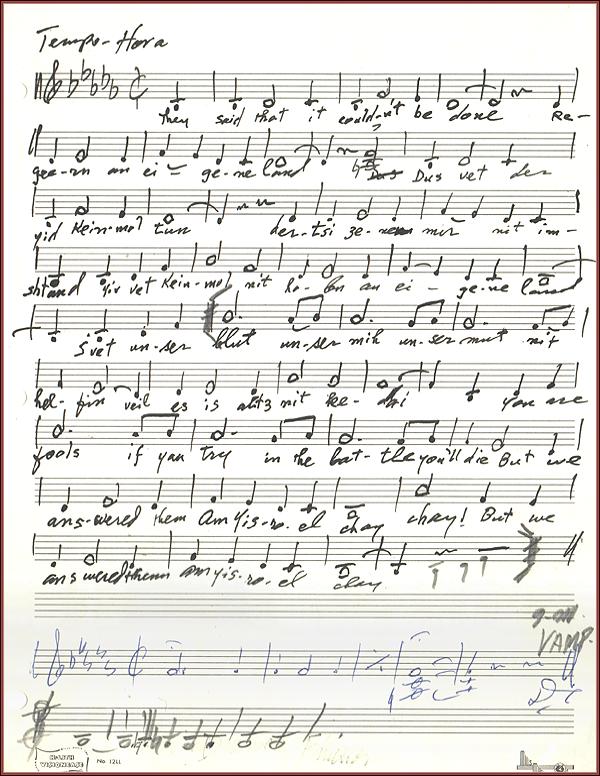 Tempo - Hora
they said that it could-n't be done Re-
gee-rn an ei - ge-ne land Dus vet der
yid Kein-mol tun der-tsi ze- mir nit im-
shtand Mir vet Kein-mol nit ho-bn an ei - ge-ne land
S'vet un-ser blut un-ser mih un-ser mut nit
hel-fin veil es is altz nit ke- You are
fools if you try in the bat-tle you'll die But we
ans-wered them Am Yis-ro-el chay chay! But we
answered them am yis-ro-el chay
VAMP
No. 1211